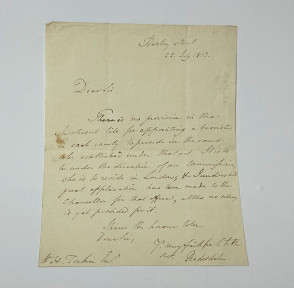 Harley Street
22 July 1813.
Dear Sir,
There is no provision in the
Insolvent bill for appointing a
in each county to provide in the court
to be established under that act. It is to
be under the direction of one Commissioner,
who is to reside in London, &
great application has been made to the
Chancellor for that office, altho' no salary
is yet provided for it.
I have the honor to be
Dear Sir,
Yr very faithful
Redesdale
W. H. Esq